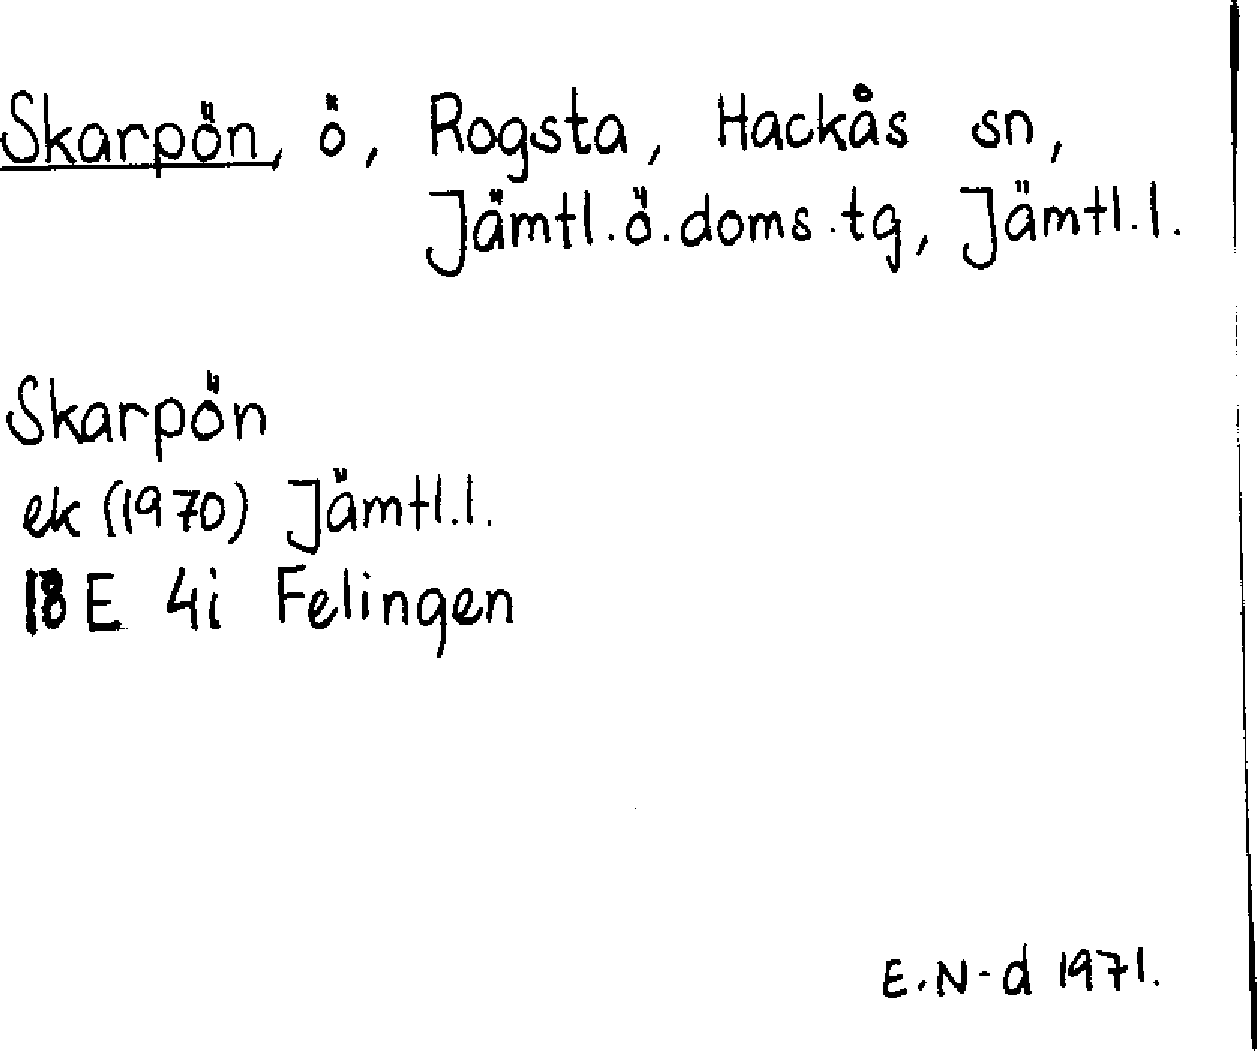 Skarpön, ö, Rogsta, Hackås sn,
Jämtl.ö.doms.tg, Jämtl.l.
Skarpön
ek (1970) Jämtl.l.
18 E 4i Felingen
E.N-d 1971.